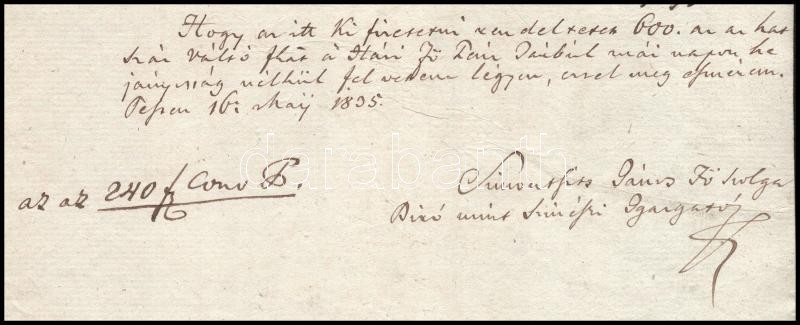 Hogy az itt ki fizetetni rendeltetett 600. az az hat
száz váltó fkat a Házi Fő Pénz Tárbúl mái napon he
jánosság nélkül fel vettem légyen, ezzel meg esmérem.
Pesten 16: Máij 1835.
az az 240 f Conv P.
János Fő Szolga
Biró mint Szinészi Igazgató
darabanth